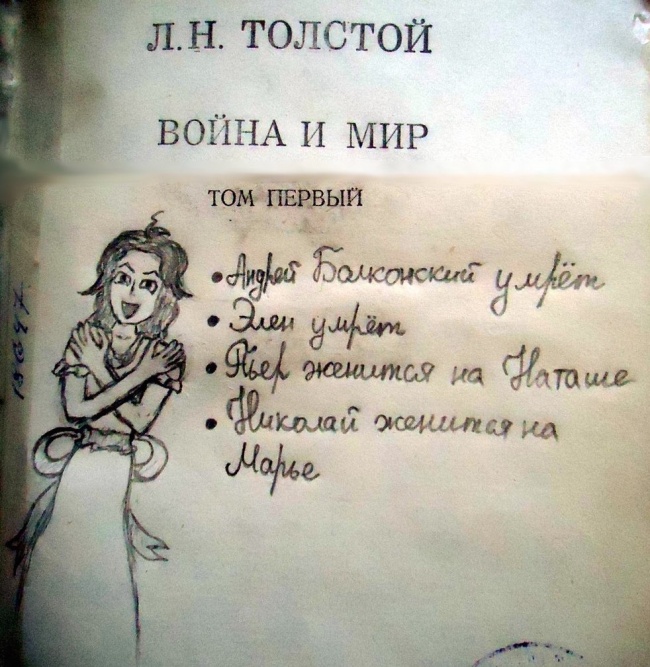 Л.Н. ТОЛСТОЙ
ВОЙНА И МИР
ТОМ ПЕРВЫЙ
• Андрей Болконский умрёт
• Элен умрёт
• Пьер женится на Наташе
• Николай женится на
Марье